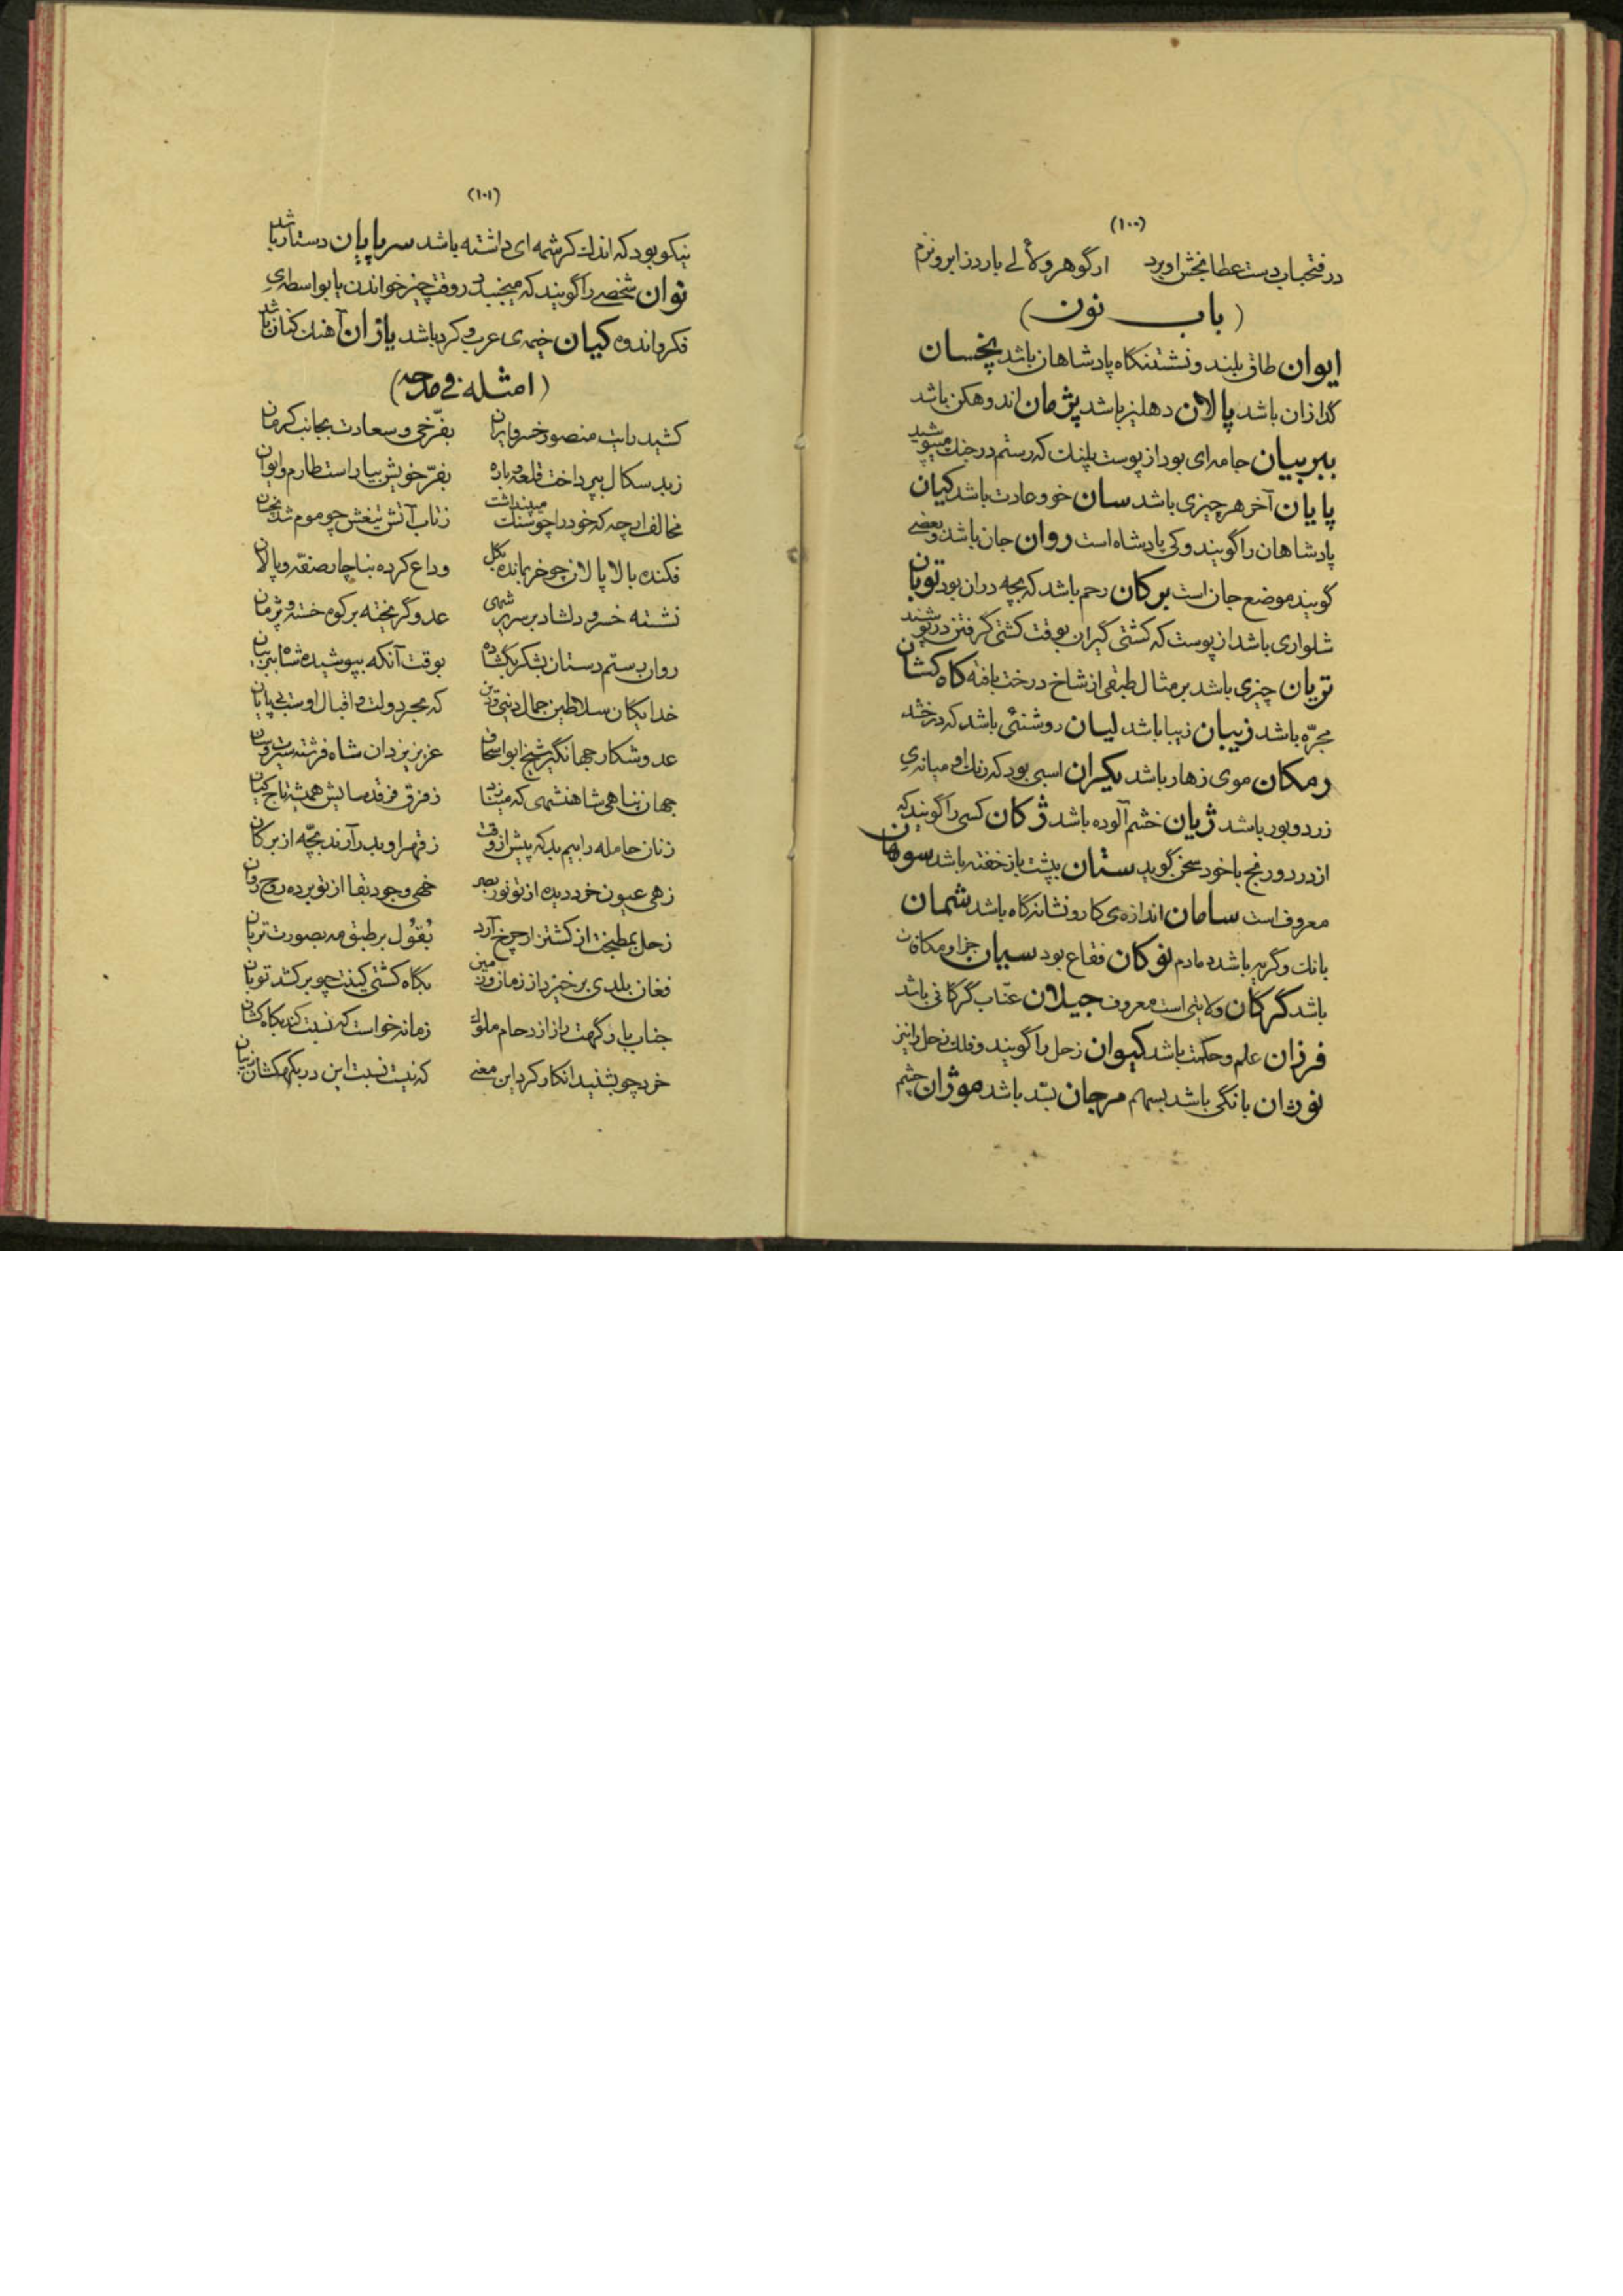 (۱۰۰)
در فتحباب دست عطا بخش او برد ار گوهر و لآلی بارد ز ابر و نزم
(باب نون)
ایوان طاق بلند و نشستنگاه پادشاهان باشد پخسان
گدازان باشد پالان دهلیز باشد پژمان اندوهگن باشد
ببربیان جامه‌ای بود از پوست پلنک که رستم در جنك میپوشید
پایان آخر هر چیزی باشد سان خو و عادت باشد کیان
پادشاهان را گویند و کی پادشاه است روان جان باشد و بعضی
گویند موضع جان است برکان رحم باشد که بچه در ان بود توبان
شلواری باشد از پوست که کشتی گیران بوقت کشتی گرفتن در پوشند
تریان چیزی باشد بر مثال طبقی از شاخ درخت بافته کاه کشان
مجرّه باشد زیبان زیبا باشد لیان روشنئی باشد که درخشد
رمکان موی زهار باشد یکران اسبی بود که رنك او میانه‌ی
زرد و بور باشد ژیان خشم آلوده باشد ژکان کسی را گویند که
از درد و رنج با خود سخن گوید ستان بپشت باز خفته باشد سوهان
معروف است سامان اندازه‌ی کار و نشانه‌گاه باشد شمان
بانك و گریه باشد دمادم نوکان فقاع بود سیان جزا و مکافات
باشد گرکان ولایتی است معروف جیلان عنّاب گرگانی باشد
فرزان علم و حکمت باشد کیوان زحل را گویند و فلك زحل را نیز
نوژان بانگی باشد بسهم مرجان بسّد باشد موژان چشم
(۱۰۱)
نیکو بود که اندك کرشمه‌ای داشته باشد سرپایان دستار باشد
نوان شخصی را گویند که میجنبد در وقت چیز خواندن یا بواسطه‌ی
فکر و اندوه کیان خیمه‌ی عرب و کرد باشد یازان آهنك کنان باشد
(امثله فی مدحه)
کشید رایت منصور خسرو ایران بفرّخی و سعادت بجانب کرمان
زبد سکال بپرداخت قلعه و باره بفرّ خویش بیاراست طارم و ایوان
مخالف ارچه که خود را چو سنك میپنداشت ز تاب آتش تیغش چو موم شد پخسان
فکنده بالا پالان چو خر بمانده بگل وداع کرده بناچار صفّه و پالان
نشسته خسرو دلشاد بر سریر شهی عدو گریخته بر کوه خسته و پژمان
روان رستم دستان بشکر بگشاده بوقت آنکه بپوشیده شاه ببربیان
خدایگان سلاطین جمال دنیی و دین که بحر دولت و اقبال اوست بی پایان
عدو شکار جهانگیر شیخ ابو اسحاق عزیز یزدان شاه فرشته سیرت و سان
جهان پناهی شاهنشهی که میتابد ز فرق فرقد سایش همیشه تاج کیان
زنان حامله را بیم بد که پیش از وقت ز قهر او بدر آرند بچّه از برکان
زهی عیون خرد دیده از تو نور بصر خهی وجود بقا از تو برده روح روان
زحل بمطبخت از کشتزار چرخ آرد بُقُول بر طبق مه بصورت تریان
فغان بلدی برخیزد از زمان و زمین بگاه کشتی کینت چو برکشد توبان
جناب بارگهت باز از دحام ملوك زمانه خواست که نسبت کند بکاه کشان
خرد چو بشنید انکار کرد این معنی که نیست نسبت این در بکهکشان زیبان